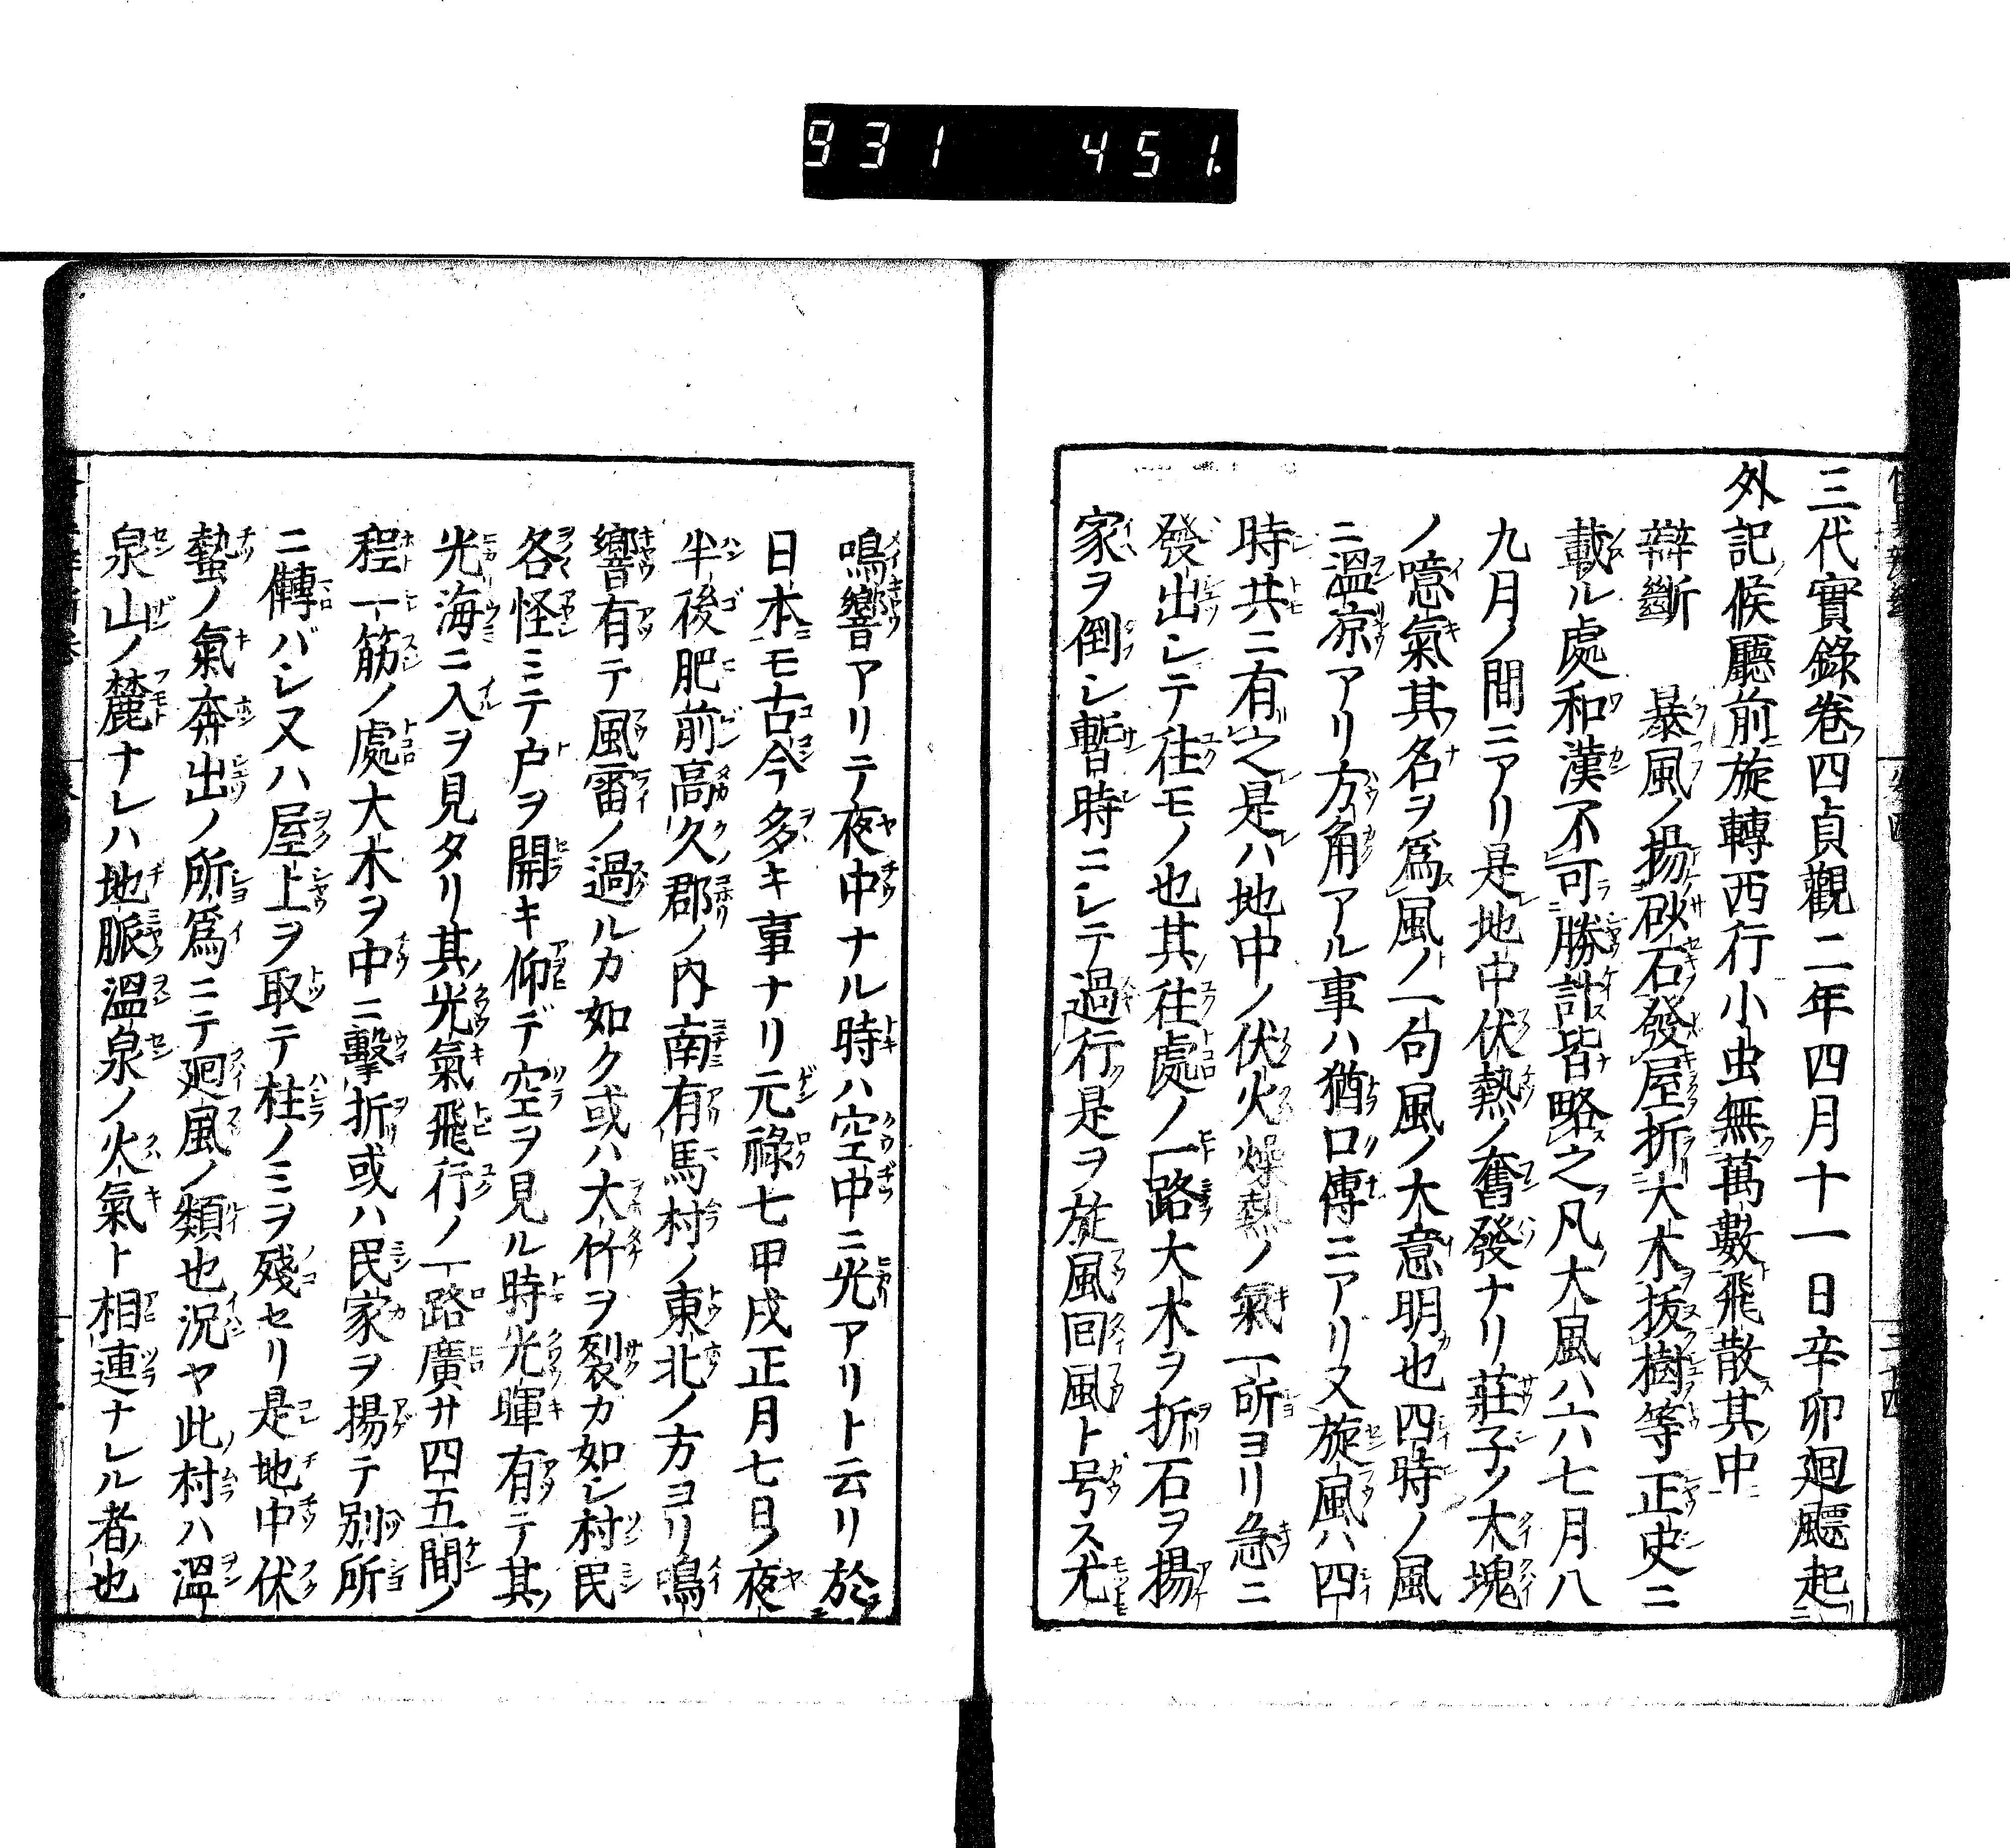 931 451.
三代實錄卷四貞觀二年四月十一日辛卯廻飈起
外記候廳前旋轉西行小虫無萬數飛散其中
辯斷 暴風ノ揚砂石發屋折大木拔樹等正史ニ
載ル處和漢不可勝計皆略之凡大風ハ六七月八
九月ノ間ニアリ是地中伏熱ノ奮發ナリ莊子ノ大塊
ノ噫氣其名ヲ爲風ノ一句風ノ大意明也四時ノ風
ニ溫凉アリ方角アル事ハ猶口傳ニアリ又旋風ハ四
時共ニ有之是ハ地中ノ伏火燥熱ノ氣一所ヨリ急ニ
發出シテ往モノ也其往處ノ一路大木ヲ折石ヲ揚
家ヲ倒シ暫時ニシテ過行是ヲ旋風回風ト号ス尤
鳴響アリテ夜中ナル時ハ空中ニ光アリト云リ於
日本モ古今多キ事ナリ元祿七甲戌正月七日ノ夜
半後肥前高久郡ノ内南有馬村ノ東北ノ方ヨリ鳴
響有テ風雷ノ過ルカ如ク或ハ大竹ヲ裂カ如シ村民
各怪ミテ戸ヲ開キ仰デ空ヲ見ル時光暉有テ其
光海ニ入ヲ見タリ其光氣飛行ノ一路廣廿四五間ノ
程一筋ノ處大木ヲ中ニ擊折或ハ民家ヲ揚テ別所
ニ轉バシ又ハ屋上ヲ取テ柱ノミヲ殘セリ是地中伏
蟄ノ氣奔出ノ所爲ニテ廻風ノ類也況ヤ此村ハ溫
泉山ノ麓ナレハ地脈溫泉ノ火氣ト相連ナレル者也